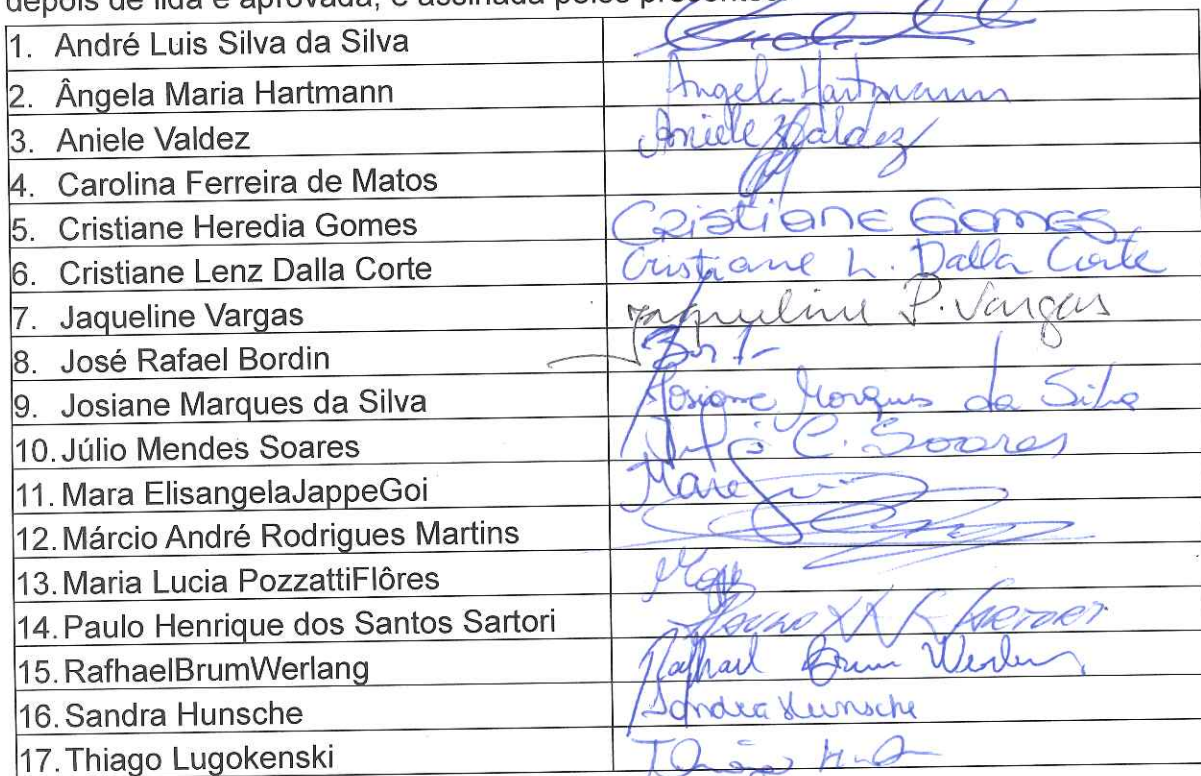 depois de lida e aprovada, é assinada pelos presentes
1. André Luis Silva da Silva
2. Ângela Maria Hartmann Angela Hartmann
3. Aniele Valdez Aniele Valdez
4. Carolina Ferreira de Matos
5. Cristiane Heredia Gomes Cristiane Gomes
6. Cristiane Lenz Dalla Corte Cristiane L. Dalla Corte
7. Jaqueline Vargas Jaqueline P. Vargas
8. José Rafael Bordin
9. Josiane Marques da Silva Josiane Marques da Silva
10. Júlio Mendes Soares C. Soares
11. Mara ElisangelaJappeGoi Mara
12. Márcio André Rodrigues Martins
13. Maria Lucia PozzattiFlôres
14. Paulo Henrique dos Santos Sartori
15. RafhaelBrumWerlang Rafhael Brum Werlang
16. Sandra Hunsche Sandra Hunsche
17. Thiago Lugokenski